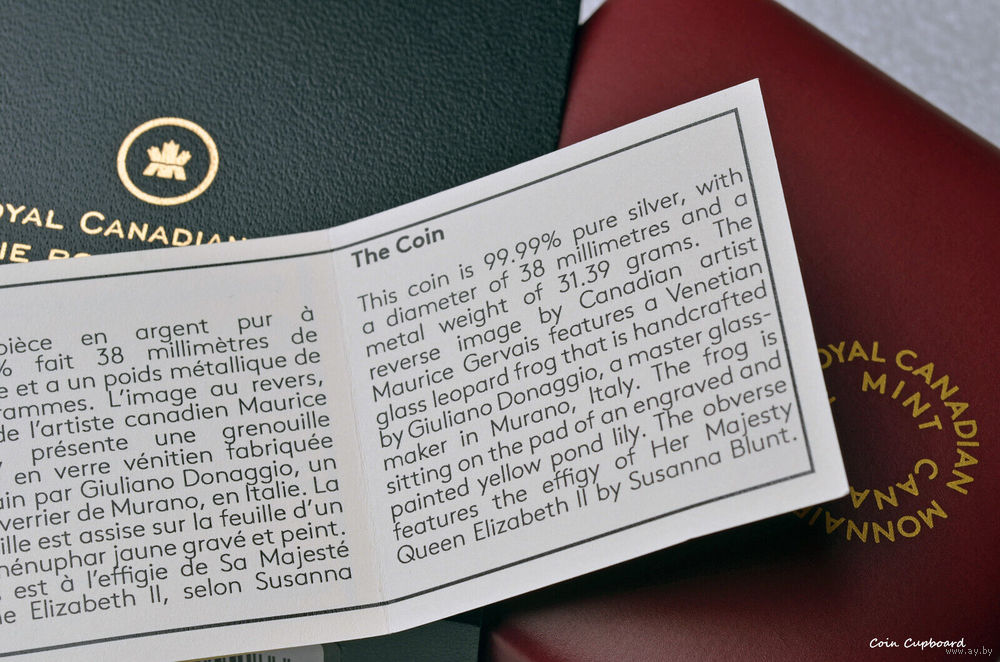 CANADIAN
The Coin
This coin is 99.99% pure silver, with
a diameter of 38 millimetres and a
metal weight of 31.39 grams. The
reverse image by Canadian artist
Maurice Gervais features a Venetian
glass leopard frog that is handcrafted
by Giuliano Donaggio, a master glass-
maker in Murano, Italy. The frog is
sitting on the pad of an engraved and
painted yellow pond lily. The obverse
features the effigy of Her Majesty
Queen Elizabeth II by Susanna Blunt.
en argent pur à
% fait 38 millimètres de
e et a un poids métallique de
L'image au revers,
de l'artiste canadien Maurice
présente une grenouille
en verre vénitien fabriquée
par Giuliano Donaggio, un
verrier de Murano, en Italie. La
est assise sur la feuille d'un
nénuphar jaune gravé et peint.
est à l'effigie de Sa Majesté
Elizabeth II, selon Susanna
ROYAL CANADIAN
MINT
Coin Cupboard
www.ay.by